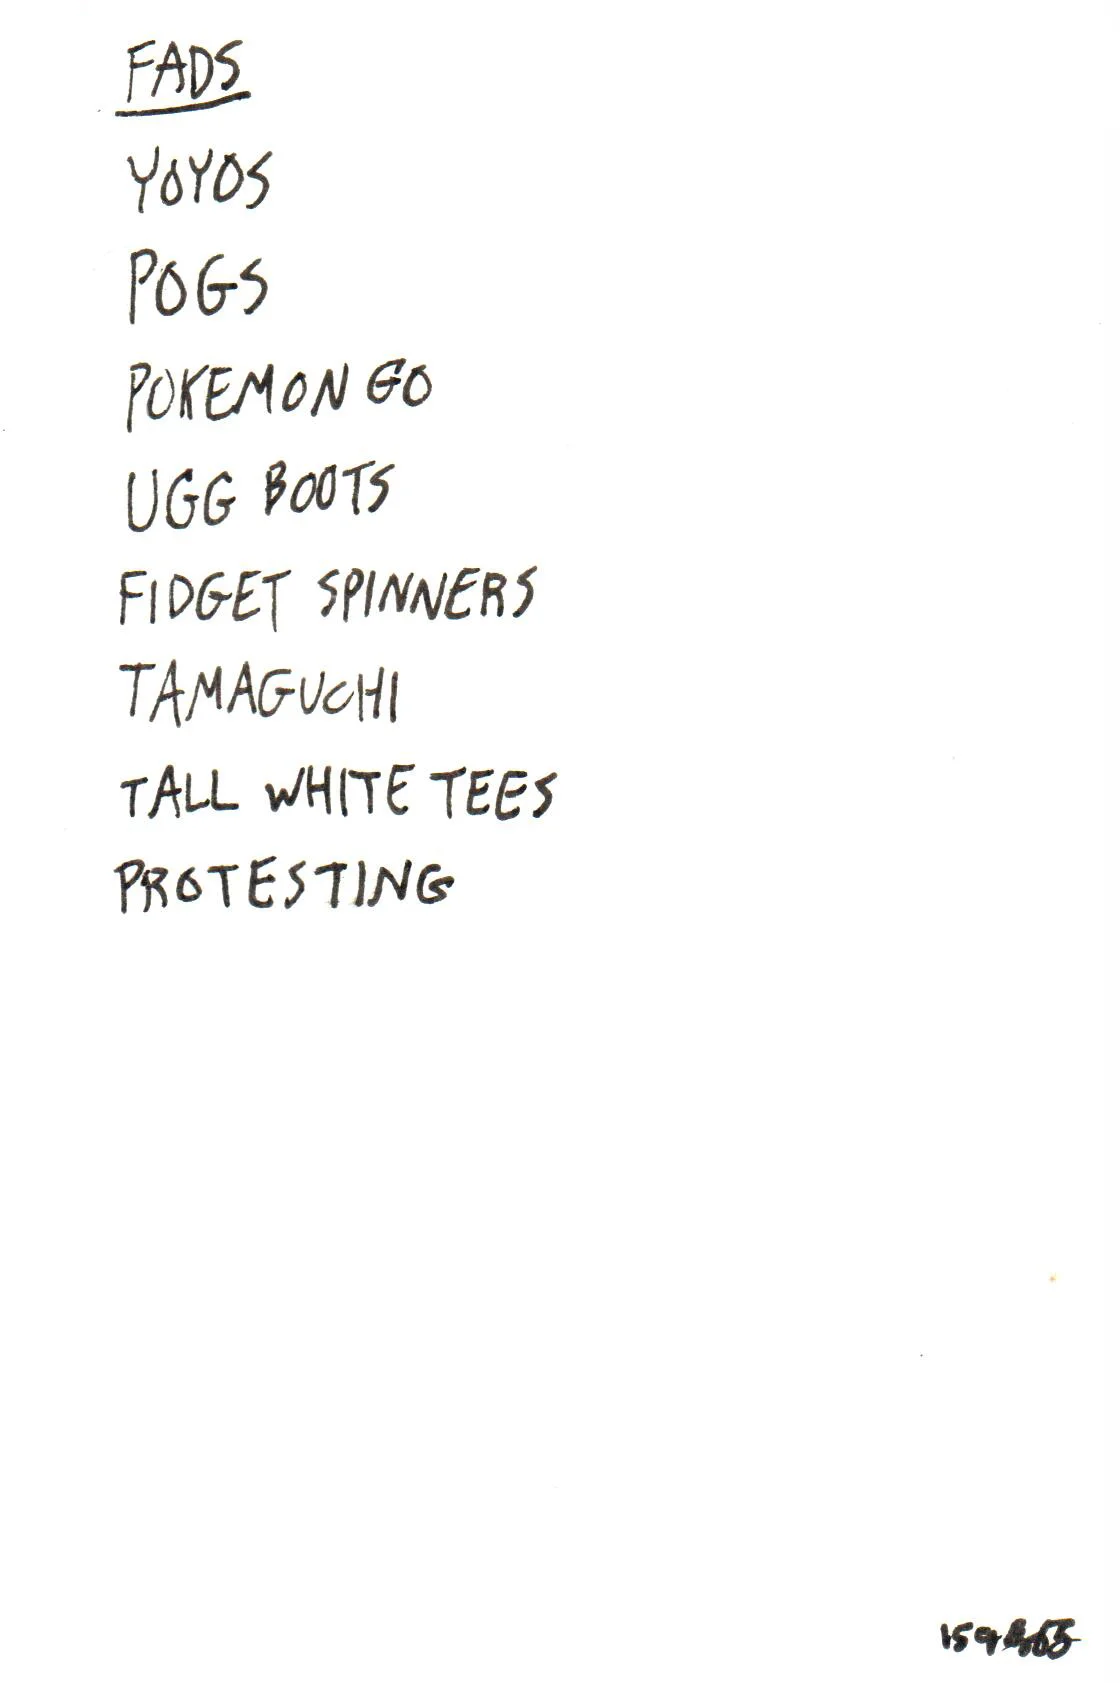 FADS
YOYOS
POGS
POKEMON GO
UGG BOOTS
FIDGET SPINNERS
TAMAGUCHI
TALL WHITE TEES
PROTESTING